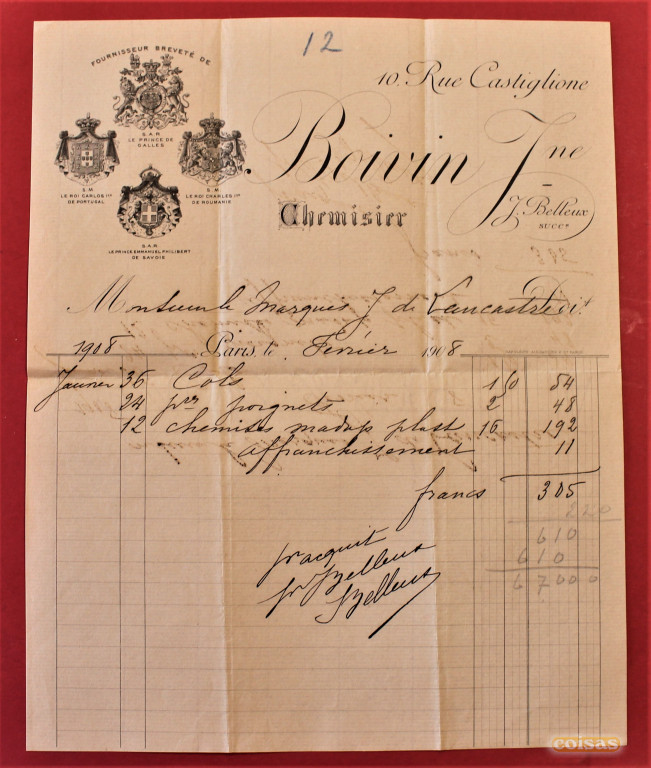 12
FOURNISSEUR BREVETÉ DE
S.A.R.
LE PRINCE DE
GALLES
S.M.
LE ROI CARLOS IER
DE PORTUGAL
S.M.
LE ROI CHARLES IER
DE ROUMANIE
S.A.R.
LE PRINCE EMMANUEL PHILIBERT
DE SAVOIE
10. Rue Castiglione
Boivin Jne
J. Belleux
SUCCR
Chemisier
Monsieur le Marquis J. de Lancastre Dit
1908 Paris, le Février 1908
Janvier 36 Cols 1 50 54
24 pres poignets 2 48
12 chemises madap plast 16 192
affranchissement 11
francs 305
220
610
610
67000
pr acquit
pr JBelleux
JBelleux
coisas